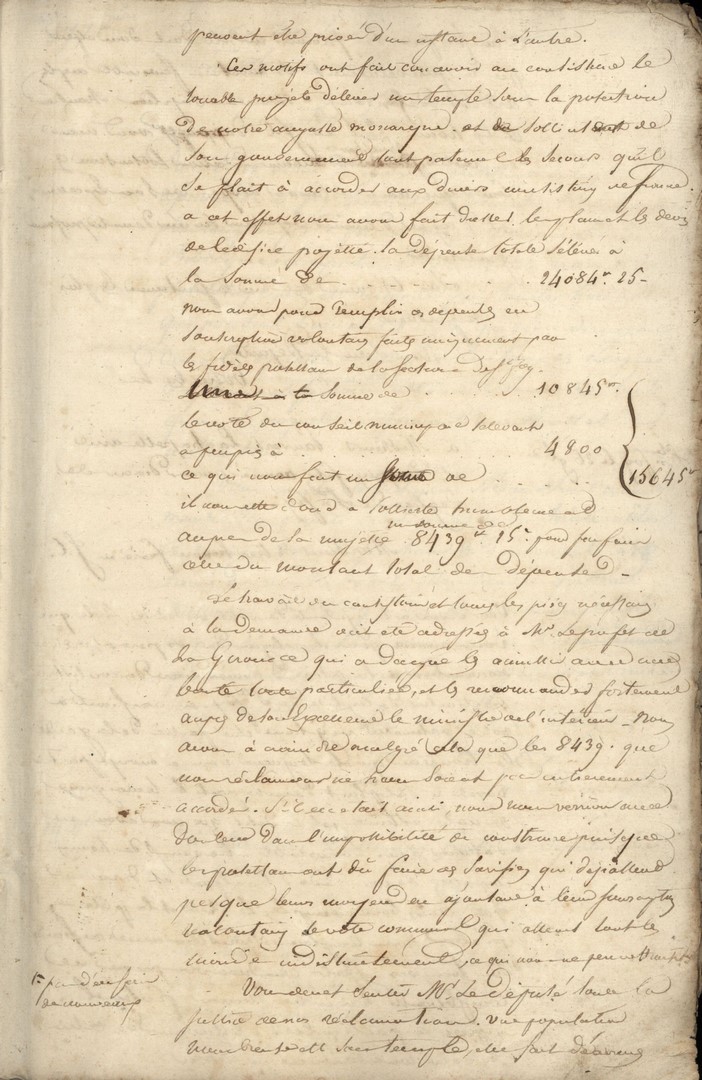 peuvent être privés d'un instant à l'autre.
Ces motifs ont fait concevoir au consistoire le
louable projet d'élever un temple sous la protection
de notre auguste monarque. et de solliciter de
son gouvernement tout paternel les secours qu'il
se plait à accorder aux divers
a cet effet nous avons fait dresser le plan et le devis
de l'édifice projetté. la dépense totale s'élève à
la somme de . . . . 24084.. 25-
nous avons pour remplir ces dépenses en
souscription volontaires faites uniquement par
les fidèles protestans de la section
somme de . . . . 10845..
le vote du conseil municipal s'élevant
a peu près à . . . . 4800
ce qui nous fait un de . . . . 15645..
il nous reste donc à solliciter humblement
auprès de sa majesté une somme de 8439.. 15. pour parfaire
celle du montant total de dépense -
Le travail du consistoire et toutes les pièces nécessaires
à la demande ont été adressés à Mr. Le préfet de
La Gironde qui a daigné les accueillir avec une
bonté toute particulière, et les recommander fortement
auprès de son Excellence le ministre de l'intérieur - Nous
avons à craindre malgré cela que les 8439. que
nous réclamons ne nous soient pas entièrement
accordés. S'il en etait ainsi, nous nous verrions avec
douleur dans l'impossibilité de construire puisque
les protestans ont dû faire des sacrifices qui dépassent
presque leurs moyens en ajoutant à leurs souscriptions
volontaires le vote communal qui atteint tout le
monde indistinctement, ce qui nous ne peuvent
par d'en faire
de nouveaux
Vous devez sentir Mr. Le Député toute la
justice de nos réclamations. une population
nombreuse est sans temple, elle fait